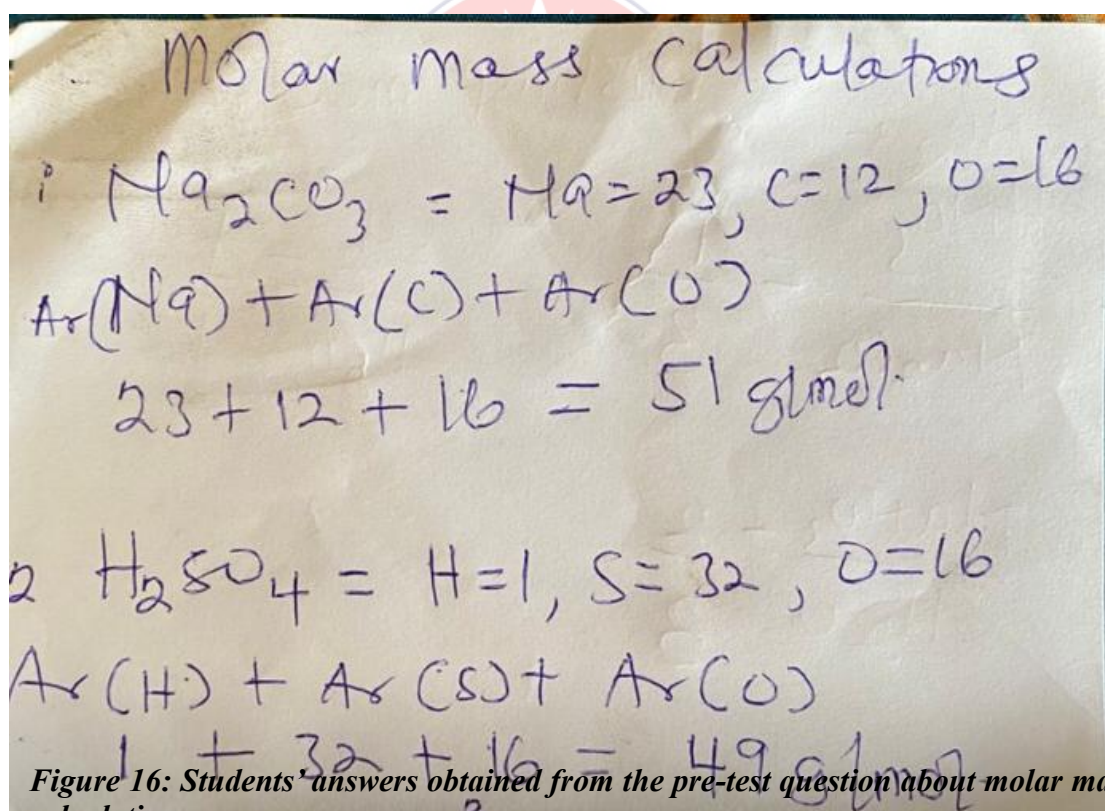 Molar mass Calculations
i Na₂CO₃ = Na=23, C=12, O=16
Ar(Na) + Ar(C) + Ar(O)
23 + 12 + 16 = 51 g/mol.
2 H₂SO₄ = H=1, S=32, O=16
Ar(H) + Ar(S) + Ar(O)
1 + 32 + 16 = 49 g/mol
Figure 16: Students' answers obtained from the pre-test question about molar ma